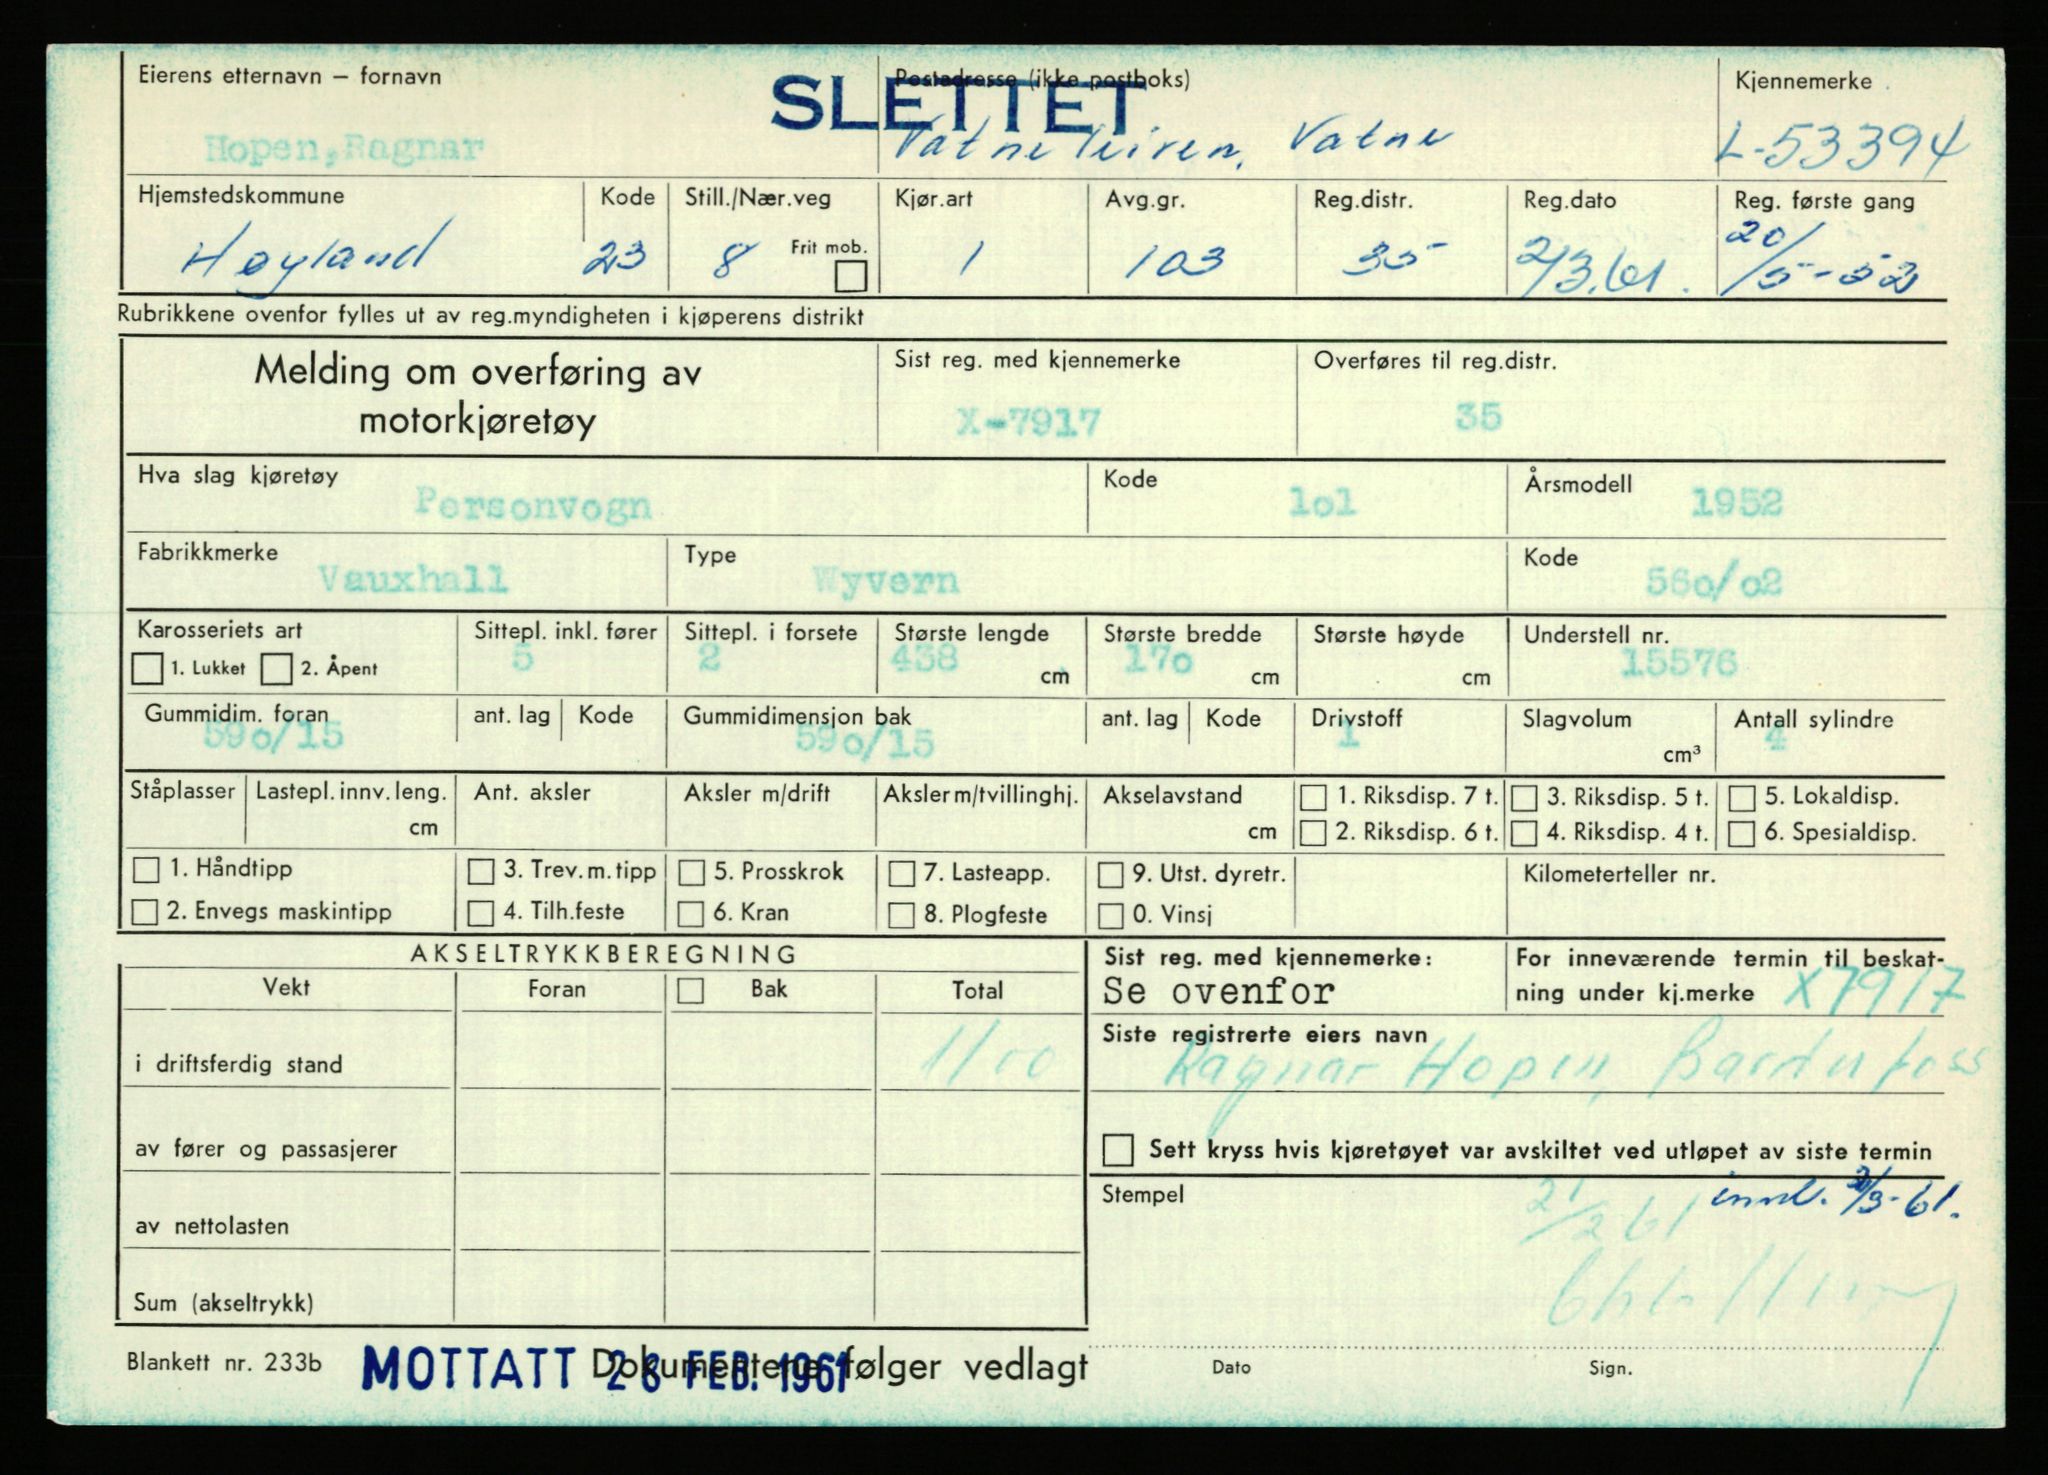 Eierens etternavn – fornavn
Postadresse (ikke postboks)
Kjennemerke
SLETTET
Hopen, Ragnar
Vatneleiren, Vatne
L-53394
Hjemstedskommune
Kode
Still./Nær.veg
Kjør.art
Avg.gr.
Reg.distr.
Reg.dato
Reg. første gang
Høyland
23
8
Frit mob.
1
103
35
2/3.61.
20/5-52
Rubrikkene ovenfor fylles ut av reg.myndigheten i kjøperens distrikt
Melding om overføring av
motorkjøretøy
Sist reg. med kjennemerke
X-7917
Overføres til reg.distr.
35
Hva slag kjøretøy
Personvogn
Kode
lol
Årsmodell
1952
Fabrikkmerke
Vauxhall
Type
Wyvern
Kode
56o/o2
Karosseriets art
1. Lukket
2. Åpent
Sittepl. inkl. fører
5
Sittepl. i forsete
2
Største lengde
438
cm
Største bredde
17o
cm
Største høyde
cm
Understell nr.
15576
Gummidim. foran
59o/15
ant. lag
Kode
Gummidimensjon bak
59o/15
ant. lag
Kode
Drivstoff
1
Slagvolum
cm³
Antall sylindre
4
Ståplasser
Lastepl. innv. leng.
cm
Ant. aksler
Aksler m/drift
Aksler m/tvillinghj.
Akselavstand
cm
1. Riksdisp. 7 t.
3. Riksdisp. 5 t.
5. Lokaldisp.
2. Riksdisp. 6 t.
4. Riksdisp. 4 t.
6. Spesialdisp.
1. Håndtipp
3. Trev. m. tipp
5. Prosskrok
7. Lasteapp.
9. Utst. dyretr.
Kilometerteller nr.
2. Envegs maskintipp
4. Tilh.feste
6. Kran
8. Plogfeste
0. Vinsj
AKSELTRYKKBEREGNING
Vekt
Foran
Bak
Total
i driftsferdig stand
1100
av fører og passasjerer
av nettolasten
Sum (akseltrykk)
Sist reg. med kjennemerke:
Se ovenfor
For inneværende termin til beskat-
ning under kj.merke X7917
Siste registrerte eiers navn
Ragnar Hopen, Bardufoss
Sett kryss hvis kjøretøyet var avskiltet ved utløpet av siste termin
Stempel
21/2 61
innl. 2/3-61.
Blankett nr. 233b
MOTTATT 28 FEB. 1961
Dokumentene følger vedlagt
Dato
Sign.